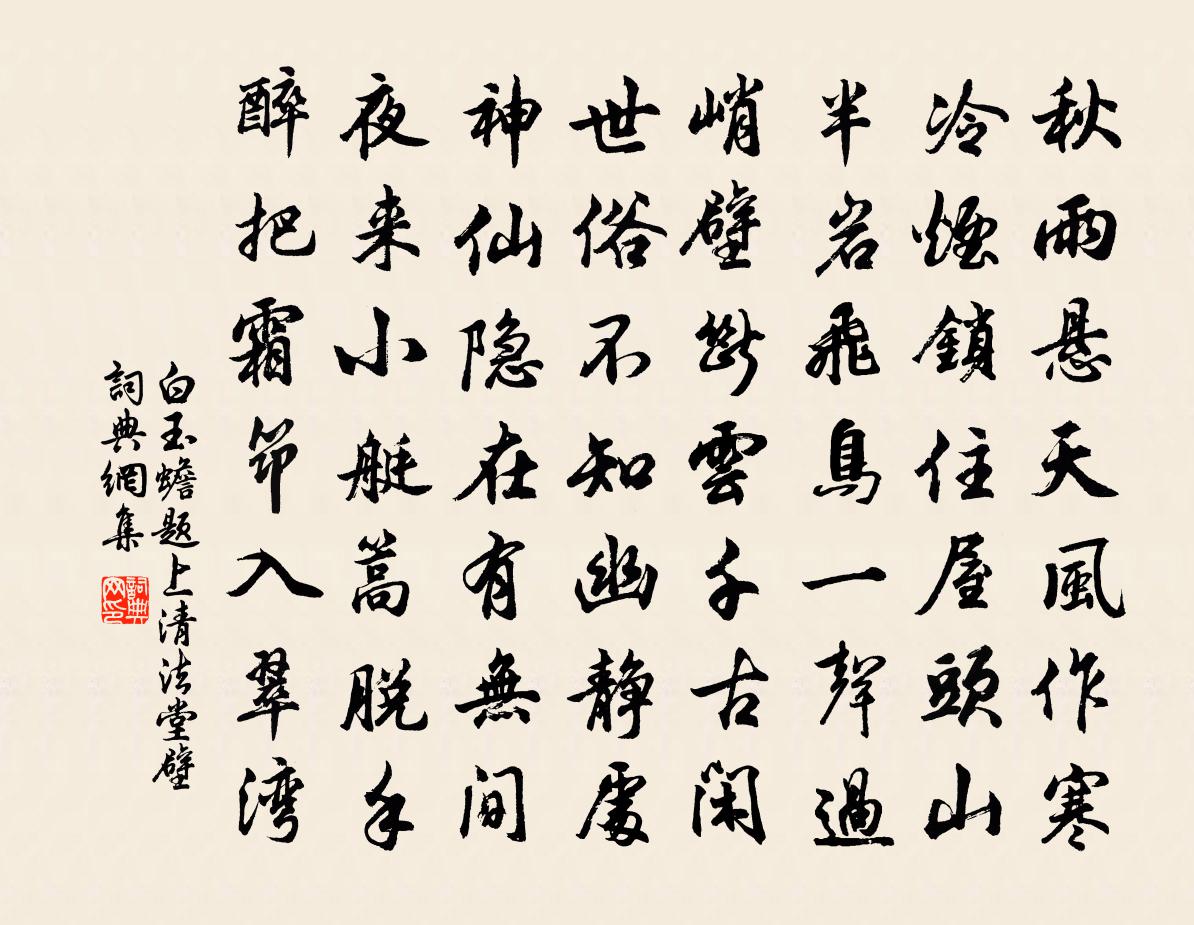 秋雨悬天風作寒
冷煙鎖住屋頭山
半岩飛鳥一聲過
峭壁斷雲千古閑
世俗不知幽静處
神仙隐在有無間
夜来小艇蒿脱手
醉把霜笻入翠湾
白玉蟾题上清法堂壁
詞典網集
詞典网印